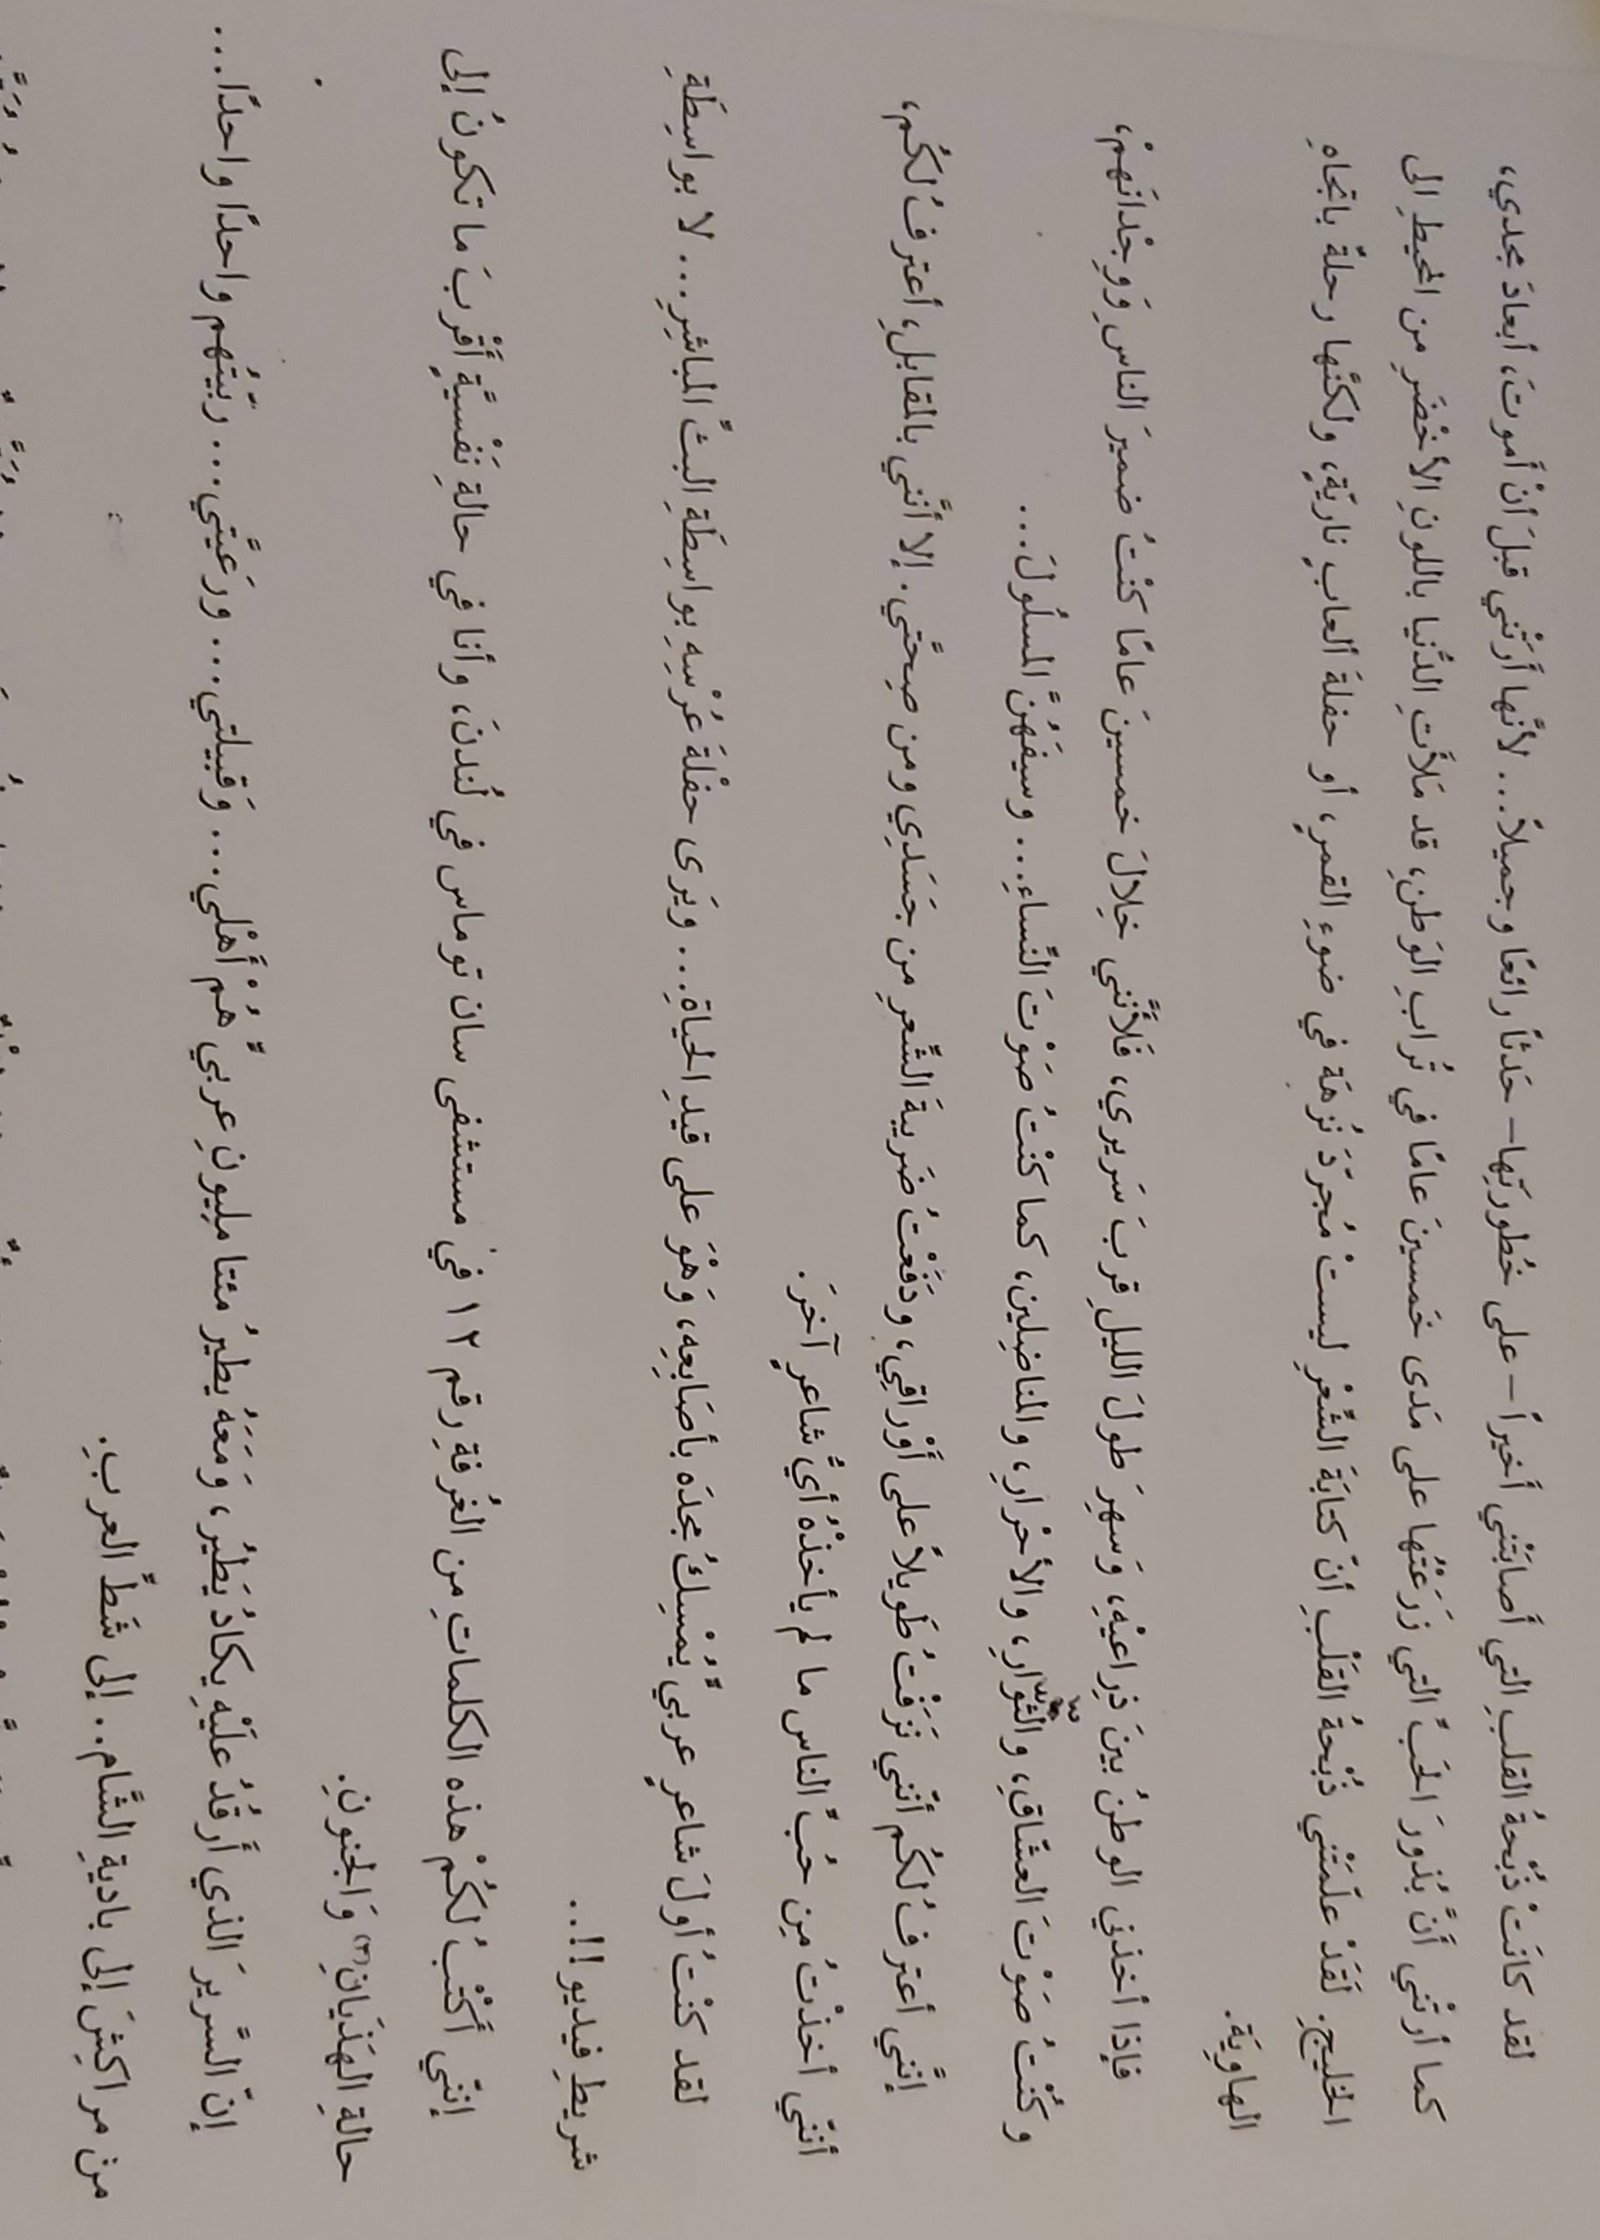 لقد كانَتْ ذُبْحةُ القلبِ التي أَصابَتْني أَخيراً – على خُطورَتِها – حَدَثاً رائعًا وجميلاً... لأنَّها أَرَتْني قبلَ أنْ أَموتَ، أبعادَ مجدي،
كما أرَتْني أَنَّ بُذورَ الحَبِّ التي زَرَعْتُها على مَدى خَمسينَ عامًا في تُرابِ الوَطنِ، قد مَلأَتِ الدُّنيا باللونِ الأخْضَرِ من المحيطِ إلى
الخليجِ. لَقَدْ علّمَتْني ذُبْحةُ القَلْبِ أنّ كتابَةَ الشِّعْرِ ليستْ مُجرّدَ نُزهَة في ضوءِ القمرِ، أو حفلةَ ألعابٍ ناريّةٍ، ولكنَّها رحلةٌ باتجاهِ
الهاويَة.
فإذا أخذني الوطنُ بينَ ذِراعيْهِ، وَسهِرَ طولَ الليلِ قربَ سَريري، فَلأنَّني خِلالَ خمسينَ عامًا كنْتُ ضميرَ الناسِ وَوِجْدانَهمْ،
وكُنْتُ صَوْتَ العشّاقِ، والثوّارِ، والأحْرارِ، والمناضِلين، كما كنْتُ صَوْتَ النّساءِ... وسيفَهُنَّ المسلُولَ...
إنَّني أعترفُ لكُم أنّني نَزَفْتُ طَويلاً على أَوْراقِي، ودَفَعْتُ ضَريبَةَ الشّعرِ مِن جَسَدِي ومن صِحّتي. إلا أنَّني بالمقابلِ، أعترفُ لكُم،
أنّني أخذْتُ مِن حُبِّ الناس ما لم يأخذْهُ أيُّ شاعرٍ آخرَ.
لقد كنْتُ أولَ شاعرٍ عربيٍّ يُمْسِكُ مجدَه بأصَابِعِهِ، وَهْوَ على قيدِ الحياةِ... ويَرى حفْلَةَ عُرْسِهِ بِواسِطَةِ البثِّ المباشرِ... لا بواسِطَةِ
شريطِ فيديو!!..
إنّني أَكْتُبُ لكُمْ هذه الكلماتِ مِن الغُرفةِ رقم ١٢ في مستشفى سان توماس في لُندنَ، وأنا في حالةِ نَفْسيَّةٍ أَقْربَ ما تكونُ إلى
حالةِ الهَذَيانِ(٣) وَالجنونِ.
إنّ السَّريرَ الذي أَرقُدُ علَيْهِ يكادُ يَطيُر، وَمَعَهُ يطيرُ مئتا مليونِ عربيٍّ هُمْ أَهْلي... وَقبيلتي... ورَعيَّتي... ربّيتُهم واحدًا واحدًا...
من مراكِشَ إلى باديةِ الشّام.. إلى شَطِّ العربِ.